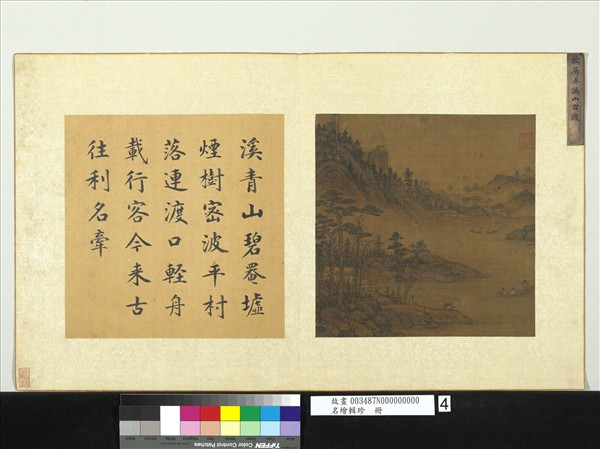 溪青山碧罨墟
煙樹密波平村
落連渡口輕舟
載行客今来古
往利名牽
溪山
故畫 003487N000000000
名繪輯珍 冊
4
TIFFEN Color Control Patches